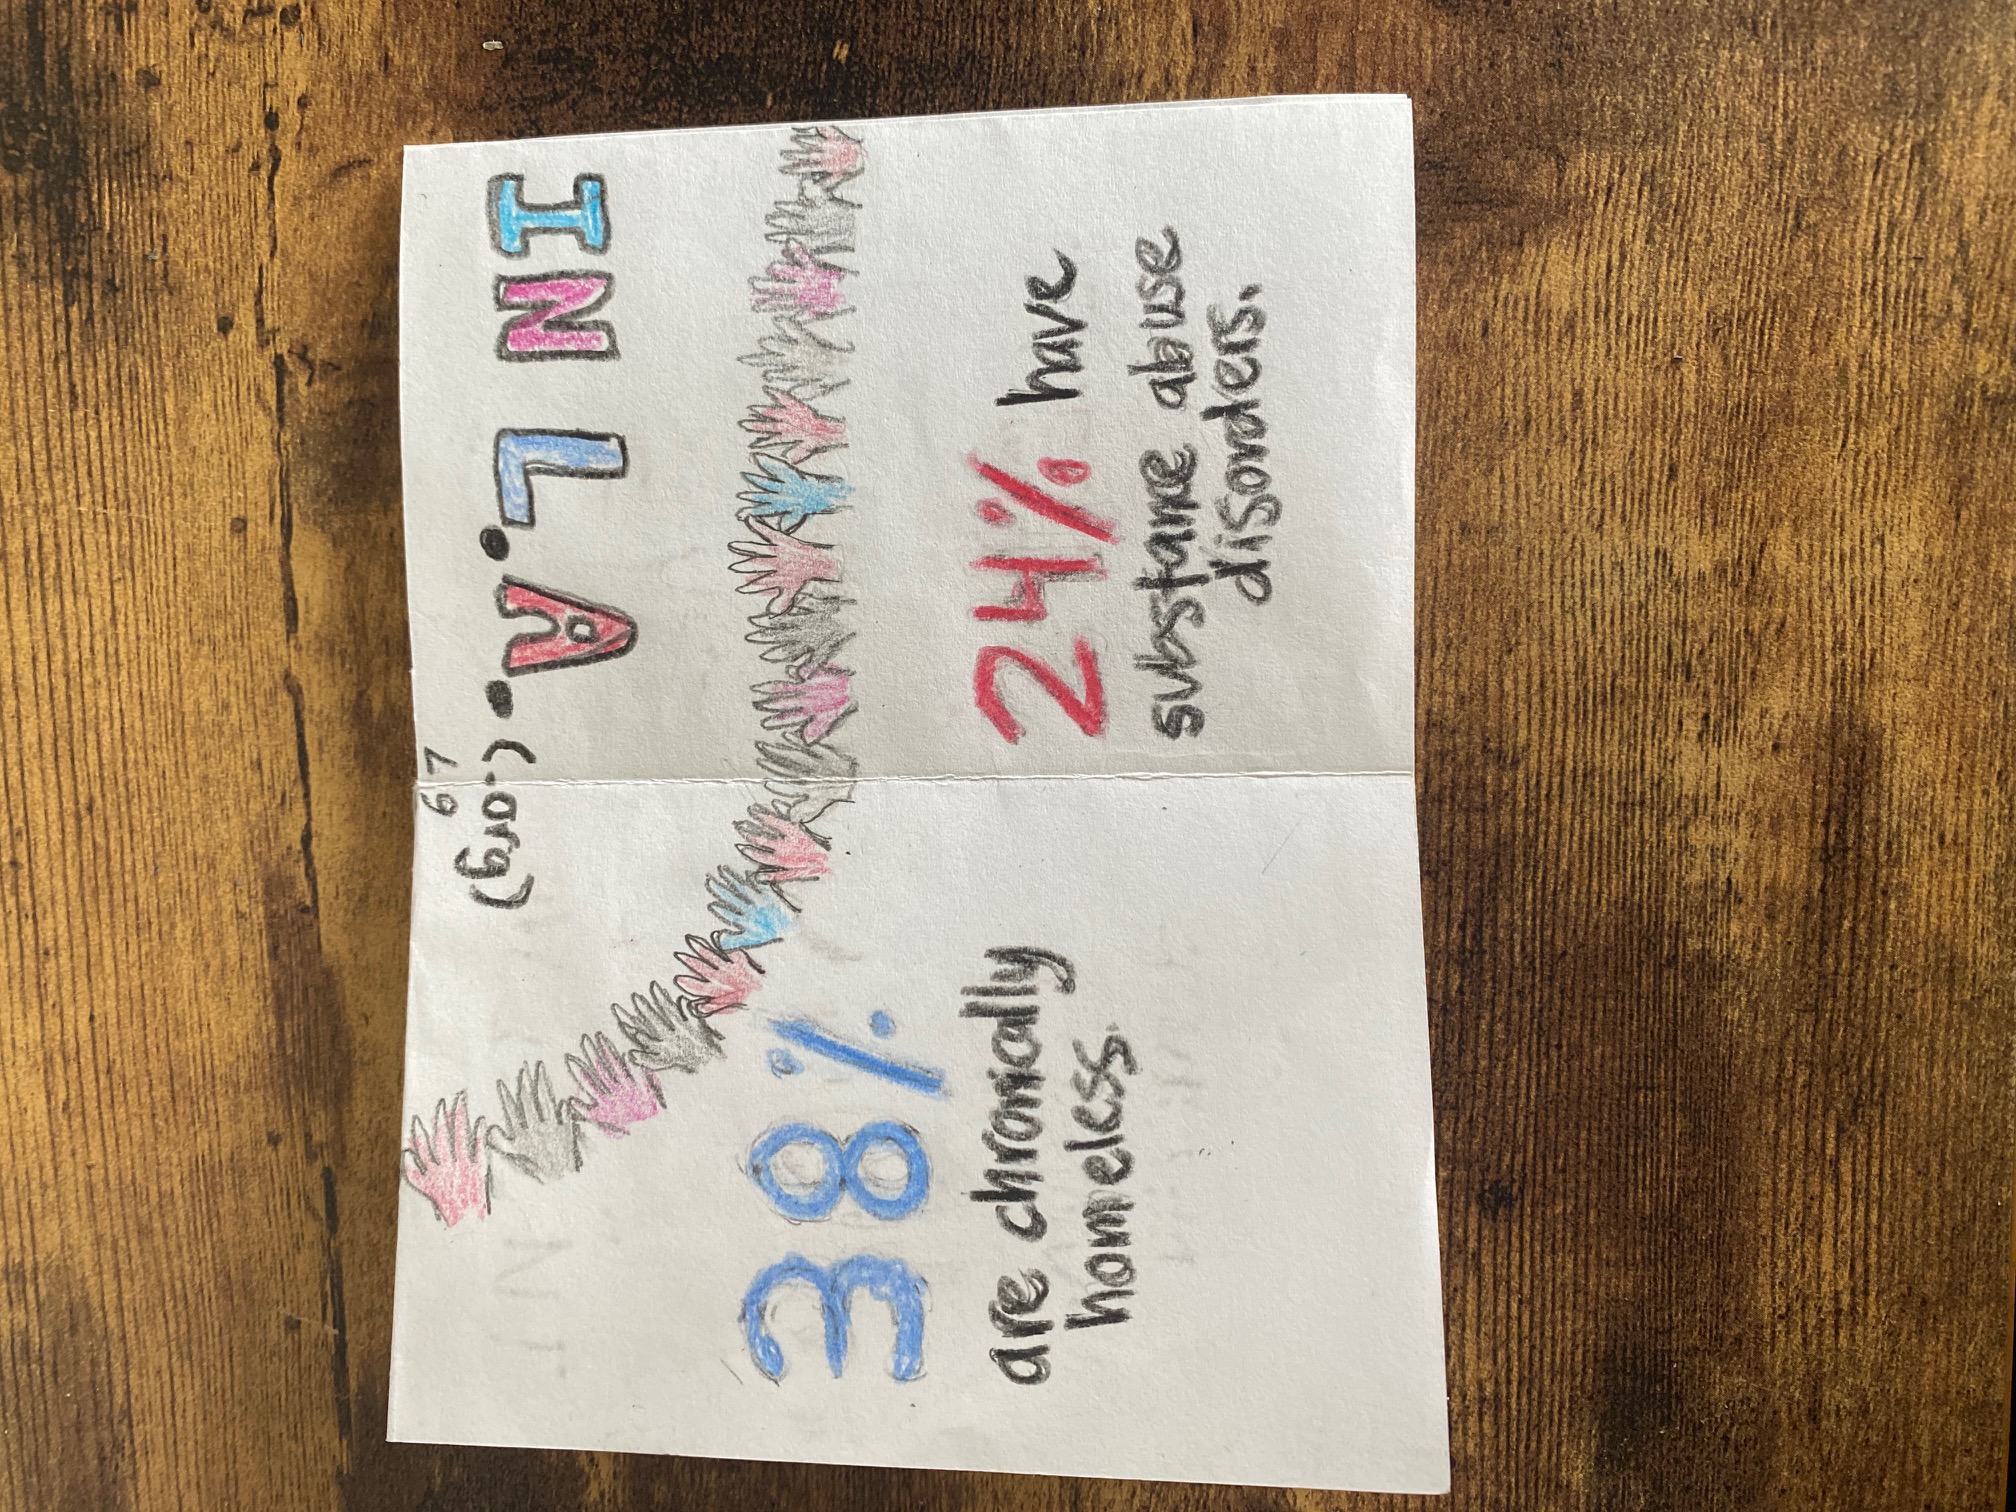 6 7
IN L.A. (.org)
38%
are chronically
homeless.
24% have
substance abuse
disorders.